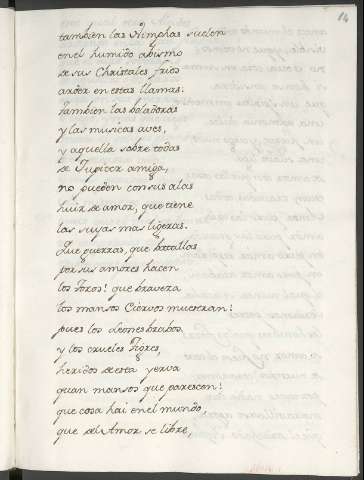 14
tambien las Nimphas suelen
en el humido abismo
de sus Christales frios
arder en estas llamas.
tambien las boladoras
y las musicas aves,
y aquella sobre todas
de Jupiter amiga,
no pueden con sus alas
huir de amor, que tiene
las suyas mas ligeras.
Que guerras, que batallas
por sus amores hacen
los toros! que braveza
los mansos Ciervos muestran!
pues los Leones brabos
y los crueles Tigres,
heridos de esta yerva
quan mansos que parescen!
que cosa hai en el mundo,
que del Amor se libre,